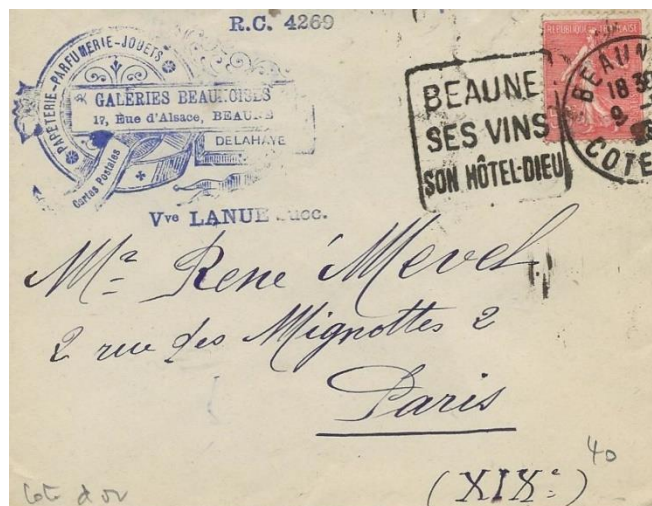 R.C. 4269
PAPÉTERIE-PARFUMERIE-JOUETS
GALERIES BEAUNOISES
17, Rue d'Alsace, BEAUNE
DELAHAYE
Cartes Postales
Vve LANUE Succ.
BEAUNE
SES VINS
SON HÔTEL-DIEU
RÉPUBLIQUE FRANÇAISE
BEAUNE
18 30
9
COTE
Mr René Mevel
2 rue des Mignottes 2
Paris
(XIXe)
40
Cote d'or